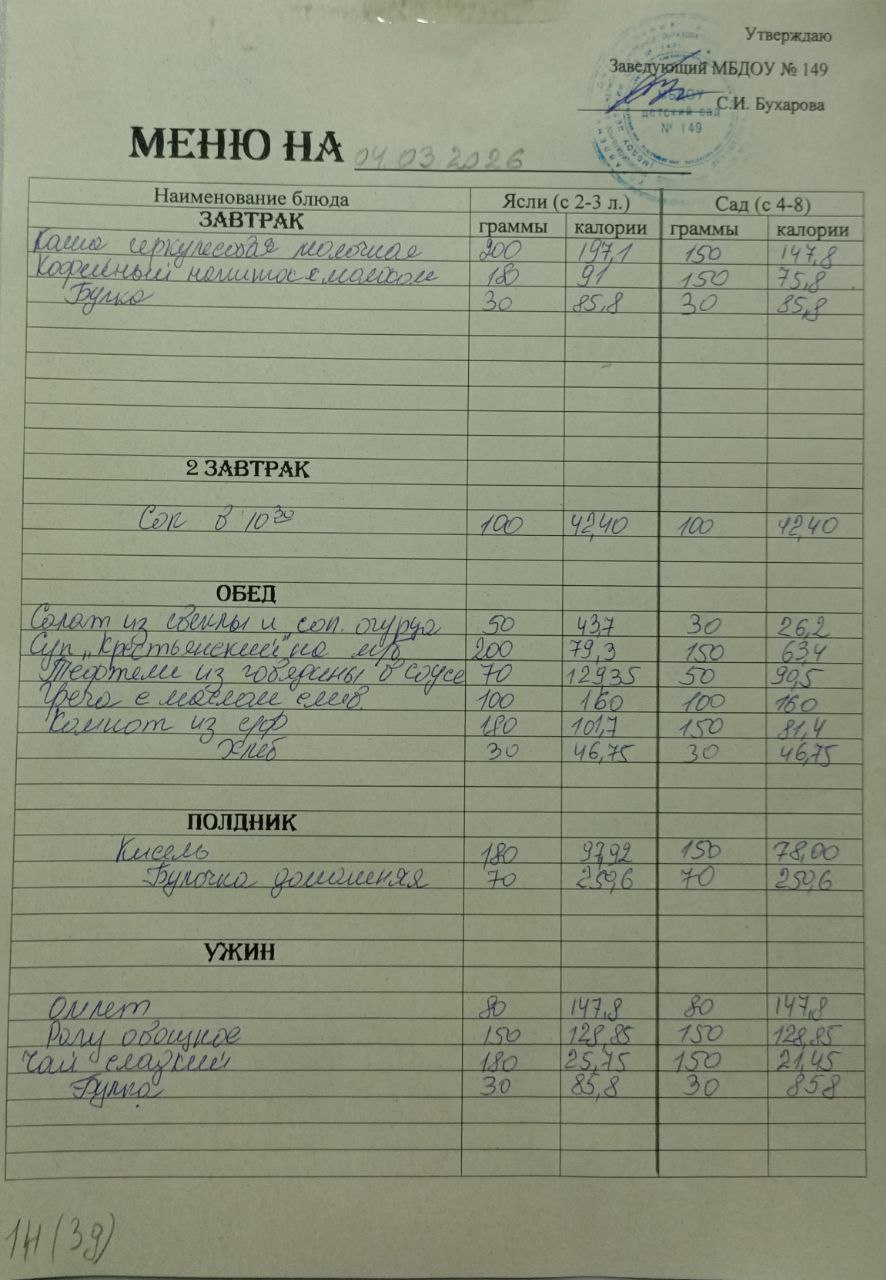 Утверждаю
Заведующий МБДОУ № 149
С.И. Бухарова
МБДОУ
детский сад
№ 149
МЕНЮ НА 04.03 2026
Наименование блюда Ясли (с 2-3 л.) Сад (с 4-8)
ЗАВТРАК граммы калории граммы калории
Каша геркулесовая молочная 200 197,1 150 147,8
Кофейный напиток с молоком 180 91 150 75,8
Булка 30 85,8 30 85,8
2 ЗАВТРАК
Сок в 10 30 100 42,40 100 42,40
ОБЕД
Салат из свеклы и сол. огурца 50 43,7 30 26,2
Суп "Крестьянский" на м/б 200 79,3 150 63,4
Тефтели из говядины в соусе 70 129,35 50 90,5
Греча с маслом слив. 100 160 100 160
Компот из с/ф 180 101,7 150 81,4
Хлеб 30 46,75 30 46,75
ПОЛДНИК
Кисель 180 97,92 150 78,00
Булочка домашняя 70 259,6 70 259,6
УЖИН
Омлет 80 147,8 80 147,8
Рагу овощное 150 128,85 150 128,85
Чай сладкий 180 25,75 150 21,45
Булка 30 85,8 30 85 8
1Н (3д)